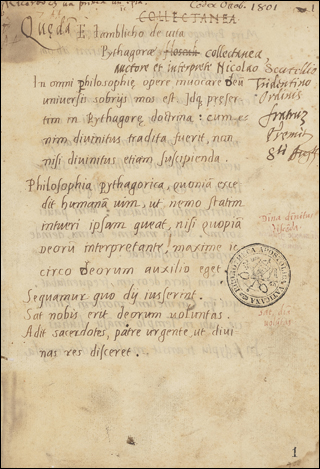 Codex Ottob. 1801
1
COLLECTANEA
Quędā E Iamblicho de uita
Pythagoræ collectanea,
Auctore et interprete Nicolao Scutellio
Tridentino
Ordinis
In omni Philosophię opere inuocare deū
uniuersi sobrijs mos est. Idq; preser
tim in Pythagorę doctrina: cum e
nim diuinitus tradita fuerit, non
nisi diuinitus etiam suscipienda.
Philosophia pythagorica, quoniā exce
dit humanā uim, ut nemo statim
intueri ipsam queat, nisi quopiā
deorū interpretante, maxime ic
circo deorum auxilio eget.
Sequamur quo dij iusserint.
Sat nobis erit deorum uoluntas.
Adit sacerdotes, patre urgente, ut diui
nas res disceret.
1